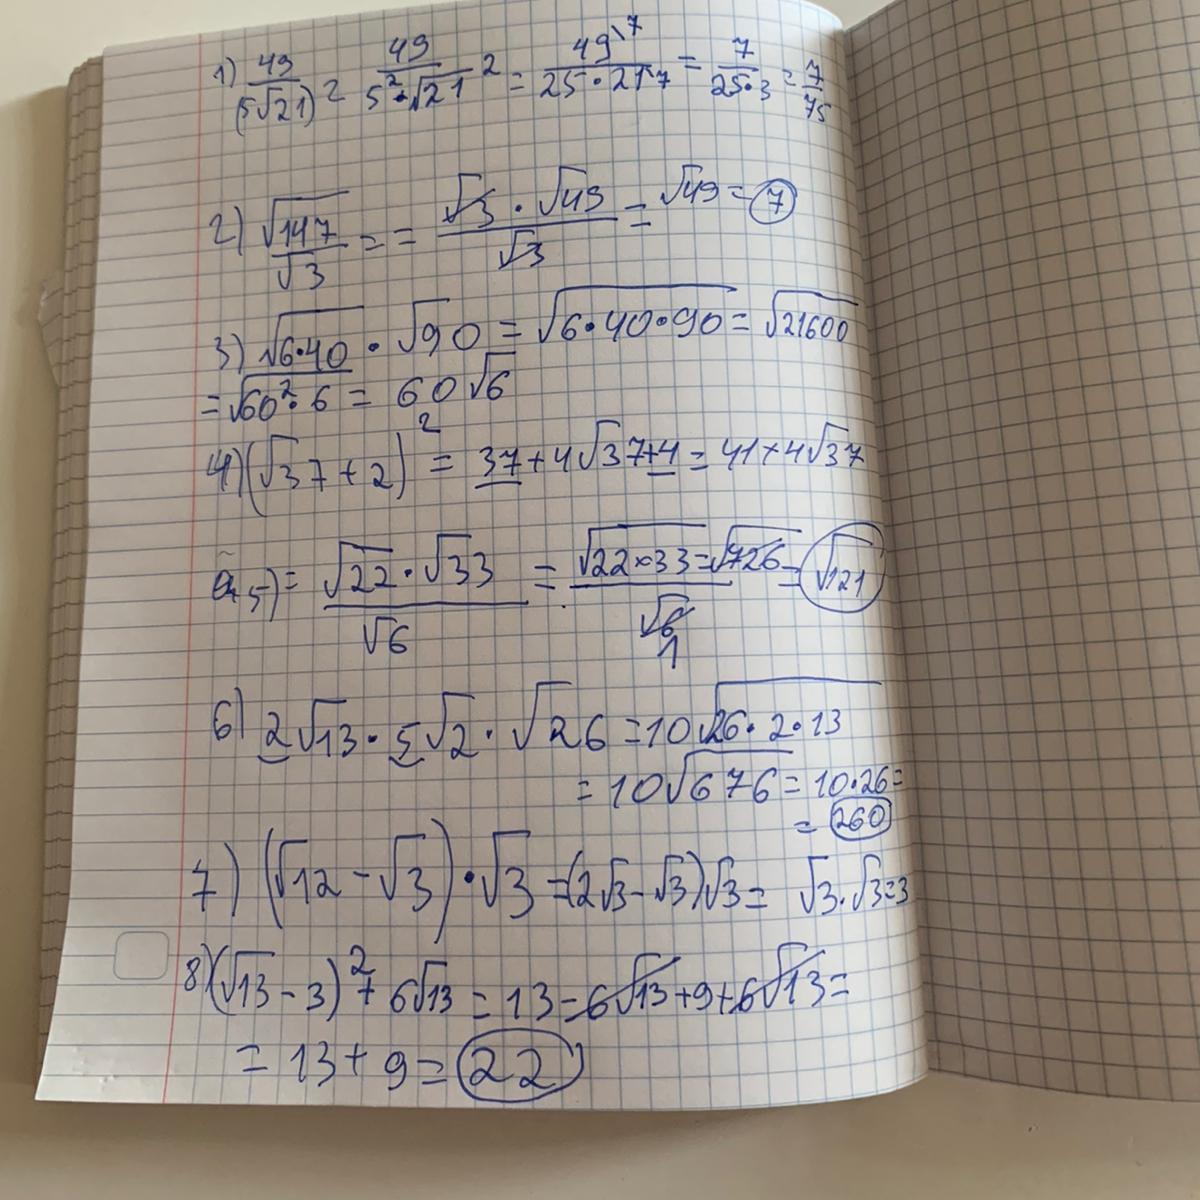 1) 49/(5√21)2 = 49/5²·√21 2 = 49\7/25·21\7 = 7/25·3 = 7/75
2) √147/√3 = = √3·√49/√3 = √49 = 7
3) √6·40 · √90 = √6·40·90 = √21600
= √60²·6 = 60√6
4) (√37+2)² = 37+4√37+4 = 41+4√37
5) = √22·√33/√6 = √22×33=√726/√6 1 = √121
6) 2√13·5√2·√26 = 10√26·2·13
= 10√676 = 10·26 =
= 260
7) (√12-√3)·√3 = (2√3-√3)√3 = √3·√3=3
8) (√13-3)²+6√13 = 13-6√13+9+6√13 =
= 13+9 = 22